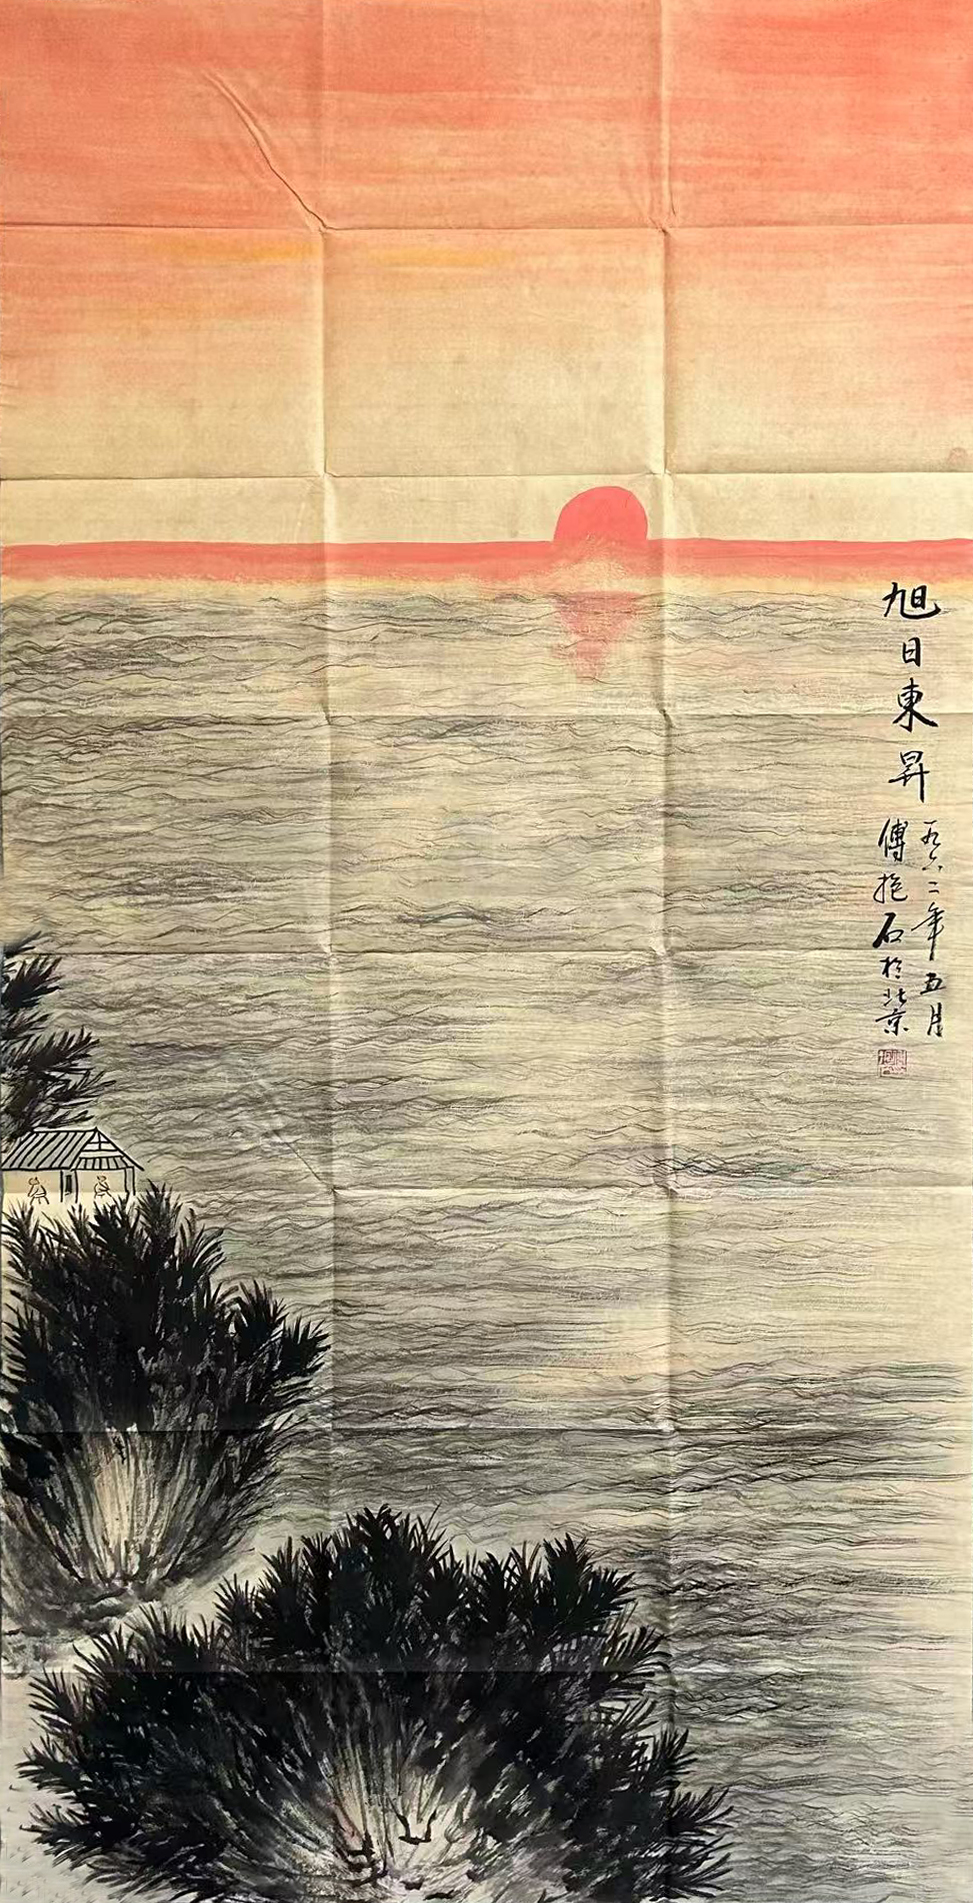 旭日東昇
一九六二年五月
傅抱石於北京